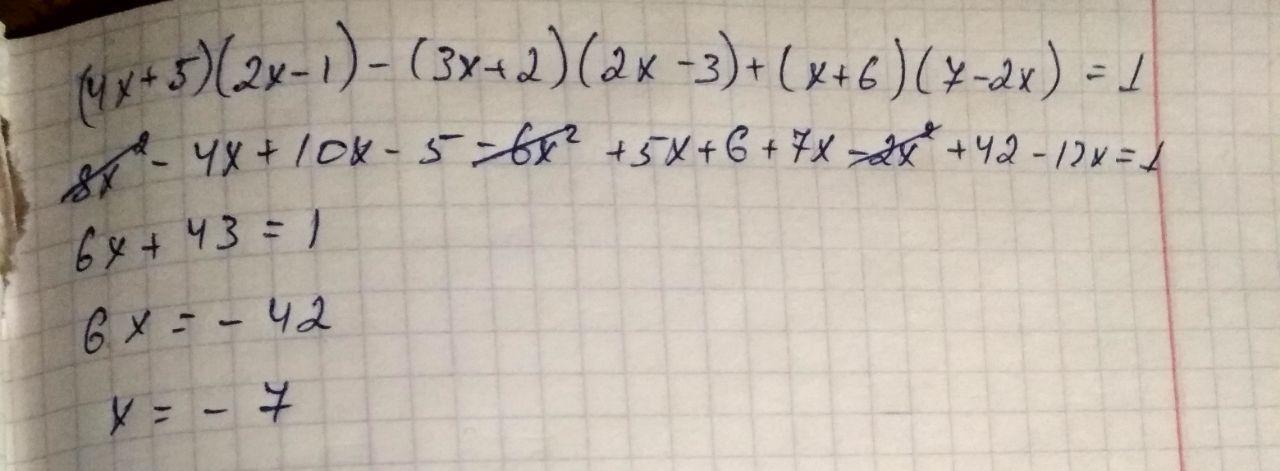 (4x+5)(2x-1)-(3x+2)(2x-3)+(x+6)(7-2x)=1
8x²-4x+10x-5-6x²+5x+6+7x-2x²+42-12x=1
6x+43=1
6x=-42
x=-7